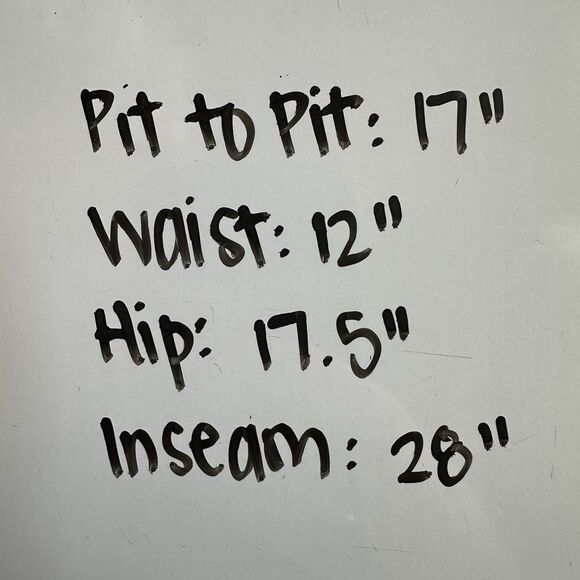 Pit to Pit: 17"
Waist: 12"
Hip: 17.5"
Inseam: 28"